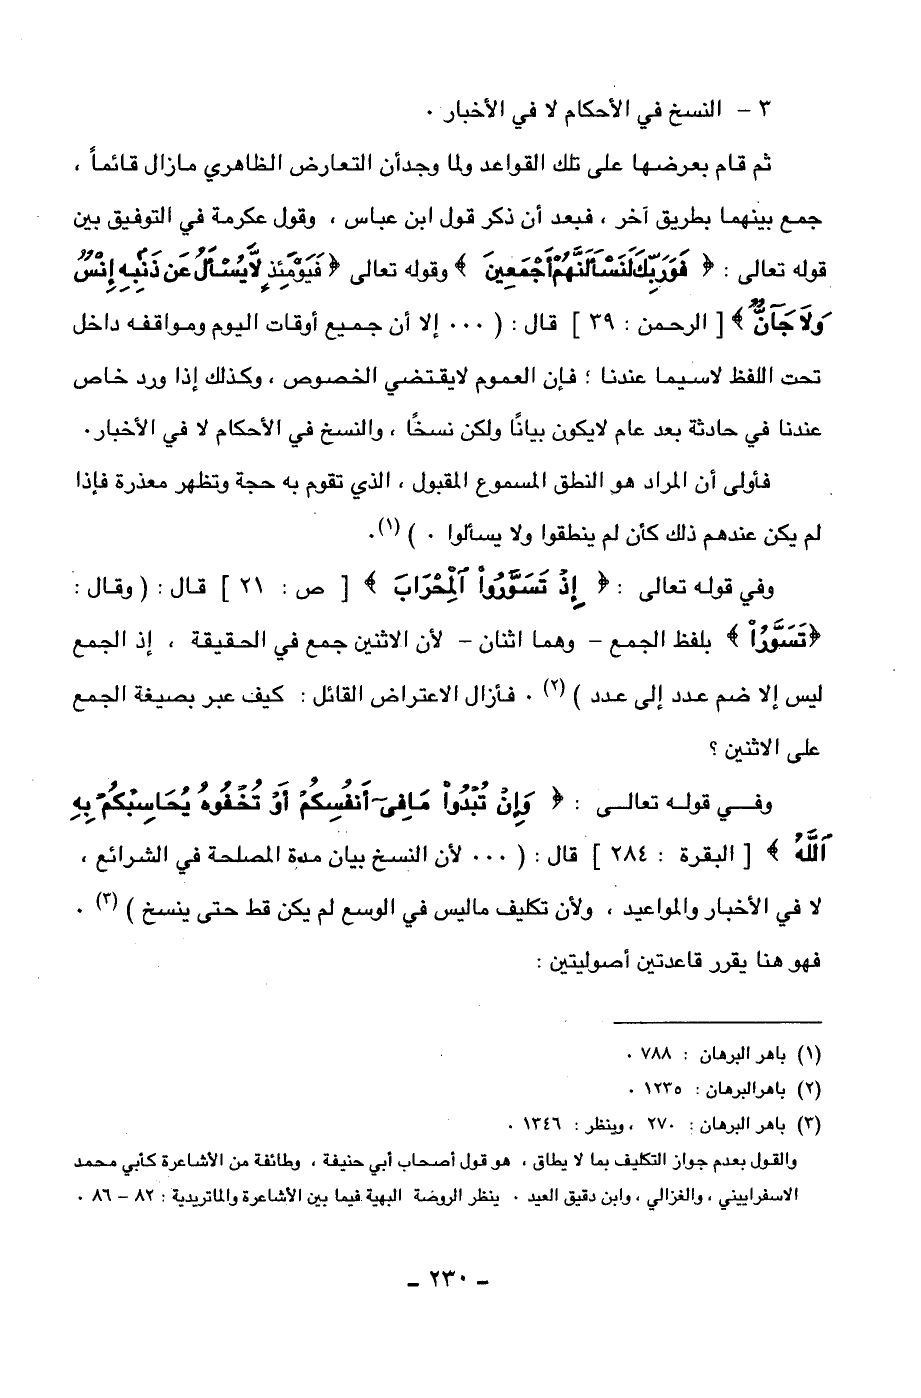 ٣ – النسخ في الأحكام لا في الأخبار .
ثم قام بعرضها على تلك القواعد ولما وجدأن التعارض الظاهري مازال قائماً ،
جمع بينهما بطريق آخر ، فبعد أن ذكر قول ابن عباس ، وقول عكرمة في التوفيق بين
قوله تعالى : ﴿ فَوَرَبِّكَ لَنَسْأَلَنَّهُمْ أَجْمَعِينَ ﴾ وقوله تعالى ﴿ فَيَوْمَئِذٍ لَّا يُسْأَلُ عَن ذَنبِهِ إِنسٌ
وَلَا جَانٌّ ﴾ [ الرحمن : ٣٩ ] قال : ( ... إلا أن جميع أوقات اليوم ومواقفه داخل
تحت اللفظ لاسيما عندنا ؛ فإن العموم لايقتضي الخصوص ، وكذلك إذا ورد خاص
عندنا في حادثة بعد عام لايكون بيانًا ولكن نسخًا ، والنسخ في الأحكام لا في الأخبار.
فأولى أن المراد هو النطق المسموع المقبول ، الذي تقوم به حجة وتظهر معذرة فإذا
لم يكن عندهم ذلك كأن لم ينطقوا ولا يسألوا . ) (١).
وفي قوله تعالى : ﴿ إِذْ تَسَوَّرُواْ الْمِحْرَابَ ﴾ [ ص : ٢١ ] قال : ( وقال :
﴿ تَسَوَّرُواْ ﴾ بلفظ الجمع – وهما اثنان – لأن الاثنين جمع في الحقيقة ، إذ الجمع
ليس إلا ضم عدد إلى عدد ) (٢) . فأزال الاعتراض القائل : كيف عبر بصيغة الجمع
على الاثنين ؟
وفي قوله تعالى : ﴿ وَإِن تُبْدُواْ مَا فِي أَنفُسِكُمْ أَوْ تُخْفُوهُ يُحَاسِبْكُم بِهِ
اللَّهُ ﴾ [ البقرة : ٢٨٤ ] قال : ( ... لأن النسخ بيان مدة المصلحة في الشرائع ،
لا في الأخبار والمواعيد ، ولأن تكليف ماليس في الوسع لم يكن قط حتى ينسخ ) (٣) .
فهو هنا يقرر قاعدتين أصوليتين :
(١) باهر البرهان : ٧٨٨ .
(٢) باهرالبرهان : ١٢٣٥ .
(٣) باهر البرهان : ٢٧٠ ، وينظر : ١٣٤٦ .
والقول بعدم جواز التكليف بما لا يطاق ، هو قول أصحاب أبي حنيفة ، وطائفة من الأشاعرة كأبي محمد
الاسفراييني ، والغزالي ، وابن دقيق العيد . ينظر الروضة البهية فيما بين الأشاعرة والماتريدية : ٨٢ – ٨٦ .
– ٢٣٠ –